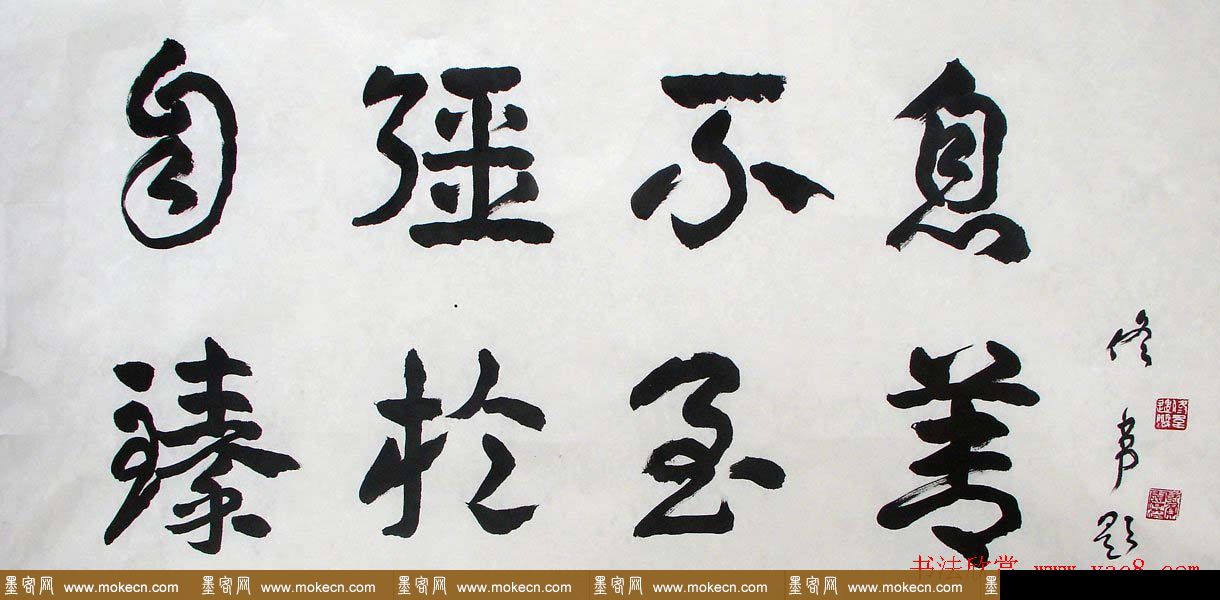 自彊不息
臻於至善
佟韦题
书法欣赏 www.yac8.com
墨客网 www.mokecn.com 墨客网 www.mokecn.com 墨客网 www.mokecn.com 墨客网 www.mokecn.com 墨客网 www.mokecn.com